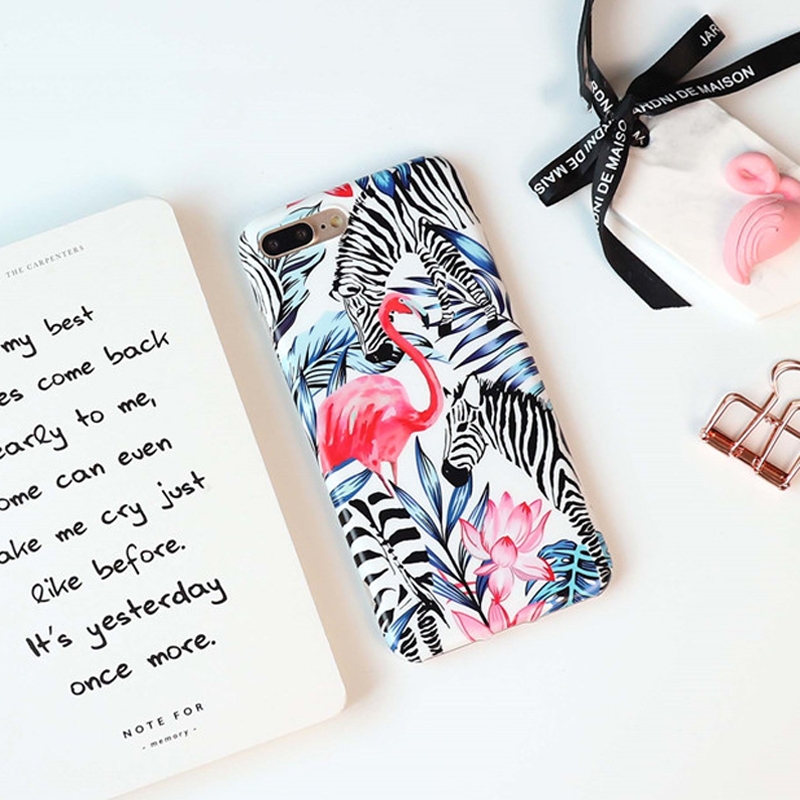 THE CARPENTERS
my best
es come back
early to me,
ome can even
ake me cry just
like before.
It's yesterday
once more.
NOTE FOR
- memory -
JAR
ARDNI DE MAISON
RDNI DE MAIS
DNI DE MAISO